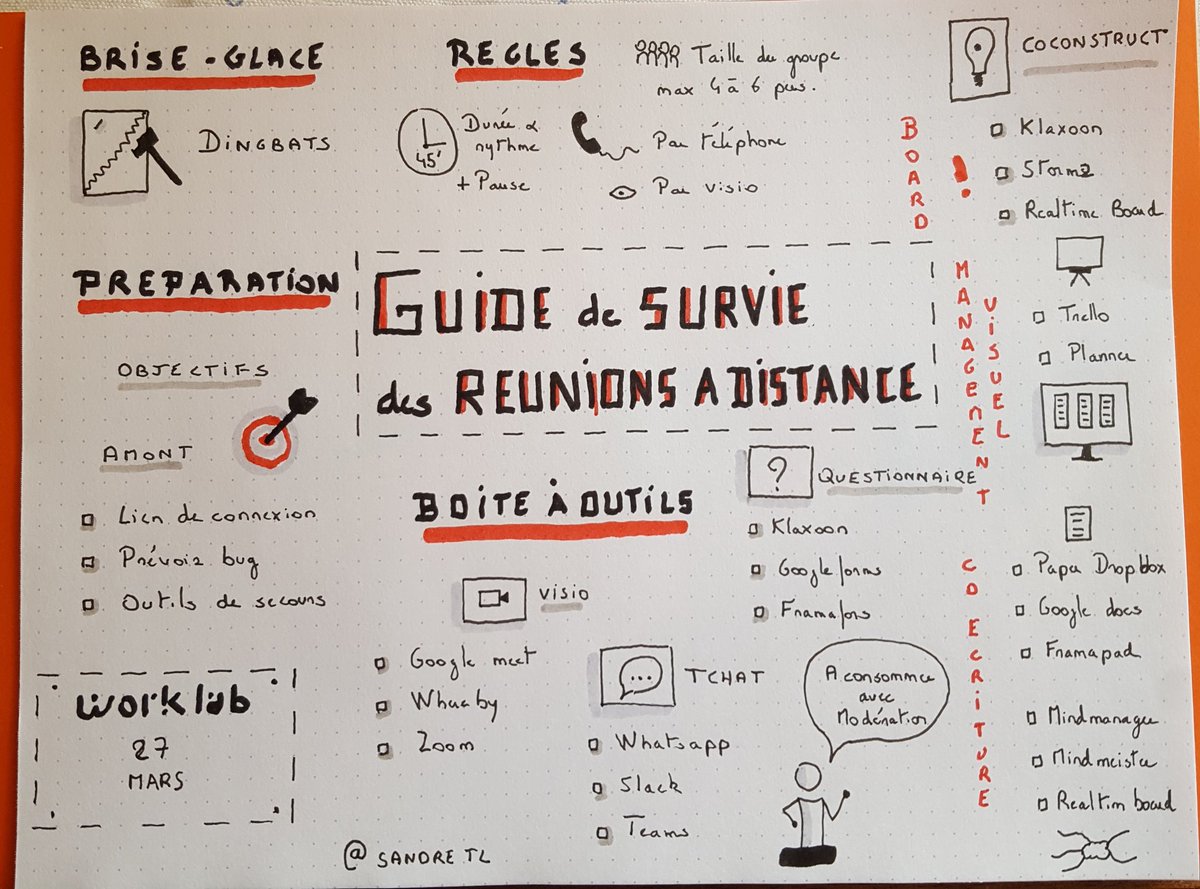 BRISE-GLACE
DINGBATS
REGLES
45'
Durée &
rythme
+ Pause
Taille du groupe
max 4 à 6 pers.
Par téléphone
Par visio
COCONSTRUCT
BOARD
!
Klaxoon
Stormz
Realtime Board
PREPARATION
OBJECTIFS
AMONT
Lien de connexion
Prévoir bug
Outils de secours
GUIDE de SURVIE
des REUNIONS A DISTANCE
MANAGEMENT
VISUEL
Trello
Planner
BOITE À OUTILS
VISIO
Google meet
Whereby
Zoom
?
QUESTIONNAIRE
Klaxoon
Google forms
Framafors
TCHAT
Whatsapp
Slack
Teams
A consommer
avec
Modération
CO ECRITURE
Paper Dropbox
Google docs
Framapad
Mindmanager
Mindmeister
Realtim board
worklab
27
MARS
@ SANDRE TL